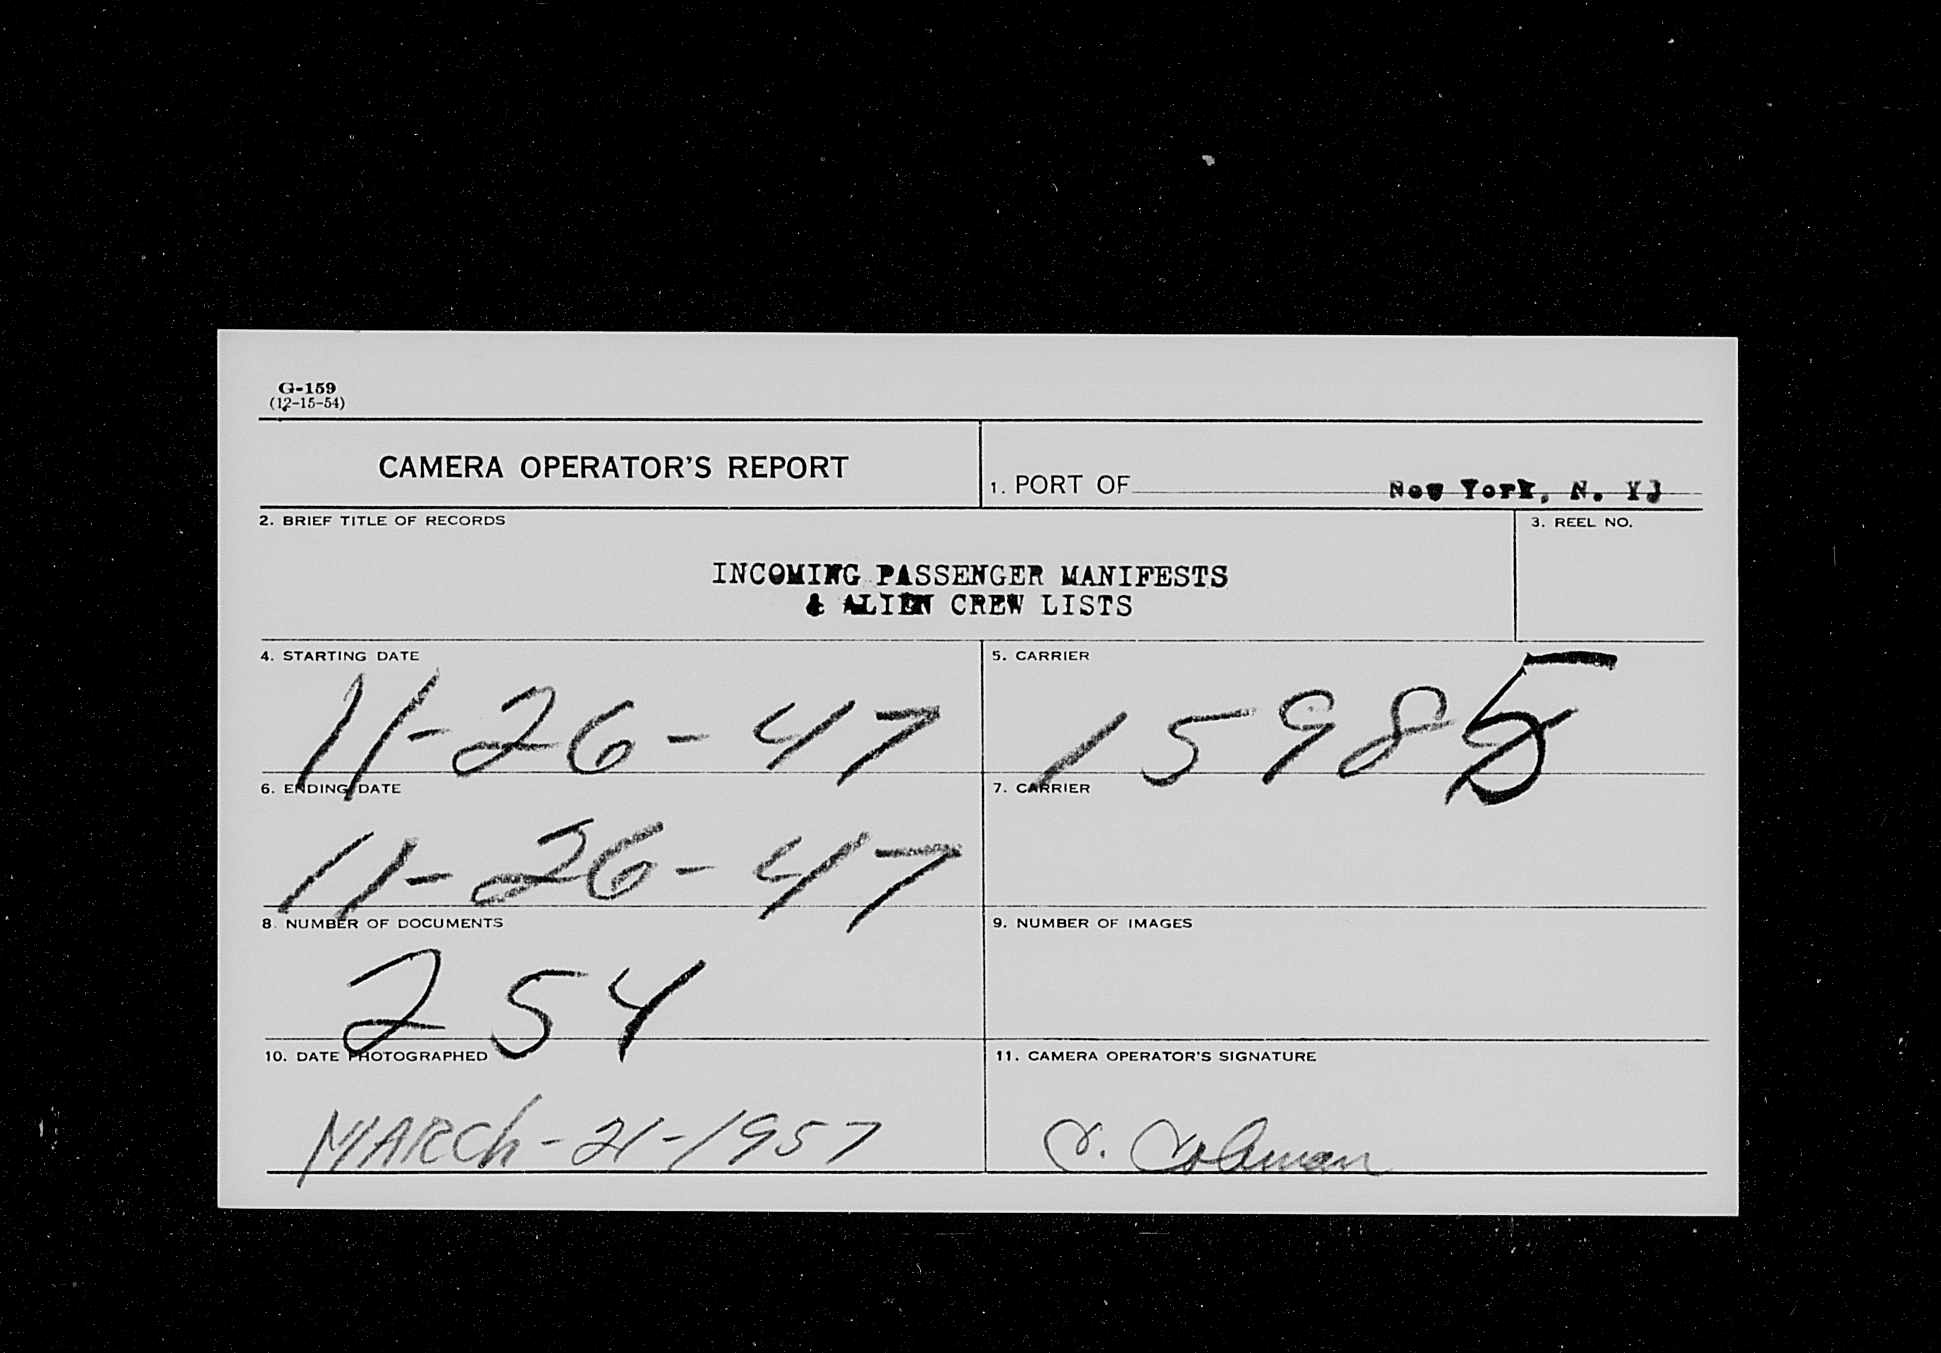 G-159
(12-15-54)
CAMERA OPERATOR'S REPORT
1. PORT OF New York, N. Y.
2. BRIEF TITLE OF RECORDS
3. REEL NO.
INCOMING PASSENGER MANIFESTS
& ALIEN CREW LISTS
4. STARTING DATE
11-26-47
5. CARRIER
15985
6. ENDING DATE
11-26-47
7. CARRIER
8. NUMBER OF DOCUMENTS
254
9. NUMBER OF IMAGES
10. DATE PHOTOGRAPHED
MARCh-21-1957
11. CAMERA OPERATOR'S SIGNATURE